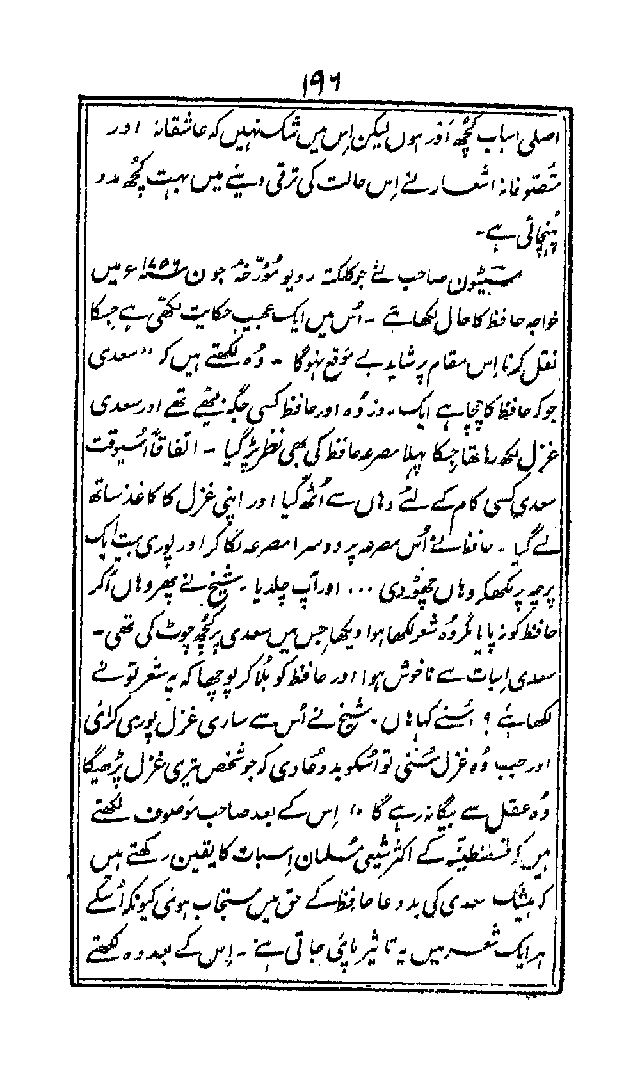 ۱۹۶
اصلی اسباب کچھ اَور ہوں لیکن اِس میں شک نہیں کہ عاشقانہ اور
متصوفانہ اشعار نے اِس حالت کی ترقی دینے میں بہت کچھ مدد
پہنچائی ہے۔
صاحب نے جو کلکتہ ریویو مُؤرّخہ جون ۱۸۵۶ء میں
خواجہ حافظ کا حال لکھا ہے ۔ اُس میں ایک عجیب حکایت لکھی ہے جسکا
نقل کرنا اِس مقام پر شاید بے موقع نہوگا ۔ وُہ لکھتے ہیں کہ "سعدی
جو کہ حافظ کا چچا ہے ایک روز وُہ اور حافظ کسی جگہ بیٹھے تھے اور سعدی
غزل لکھ رہا تھا جسکا پہلا مصرعہ حافظ کی بھی نظر پڑ گیا ۔ اتفاقاً اُسیوقت
سعدی کسی کام کے لئے وہاں سے اُٹھ گیا اور اپنی غزل کا کاغذ ساتھ
لے گیا ۔ حافظ نے اُس مصرعہ پر دوسرا مصرعہ لگا کر اور پوری بیت ایک
پرچہ پر لکھکر وہاں چھوڑ دی ... اور آپ چلدیا ۔ شیخ نے پھر وہاں آکر
حافظ کو نہ پایا مگر وُہ شعر لکھا ہوا دیکھا جس میں سعدی پر کچھ چوٹ کی تھی ۔
سعدی اِس بات سے ناخوش ہوا اور حافظ کو بُلا کر پوچھا کہ یہ شعر تو نے
لکھا ہے ؟ اُسنے کہا ہاں ۔ شیخ نے اُس سے ساری غزل پوری کرائی
اور جب وُہ غزل سُنی تو اُسکو بد دُعا دی کہ جو شخص تیری غزل پڑھیگا
وُہ عقل سے بیگانہ رہے گا" اِس کے بعد صاحب موصوف لکھتے
ہیں کہ قسطنطنیہ کے اکثر شیعی مُسلمان اِس بات کا یقین رکھتے ہیں
کہ بیشک سعدی کی بد دعا حافظ کے حق میں مستجاب ہوئی کیونکہ اُسکے
ہر ایک شعر میں یہ تاثیر پائی جاتی ہے" ۔ اِس کے بعد وہ لکھتے